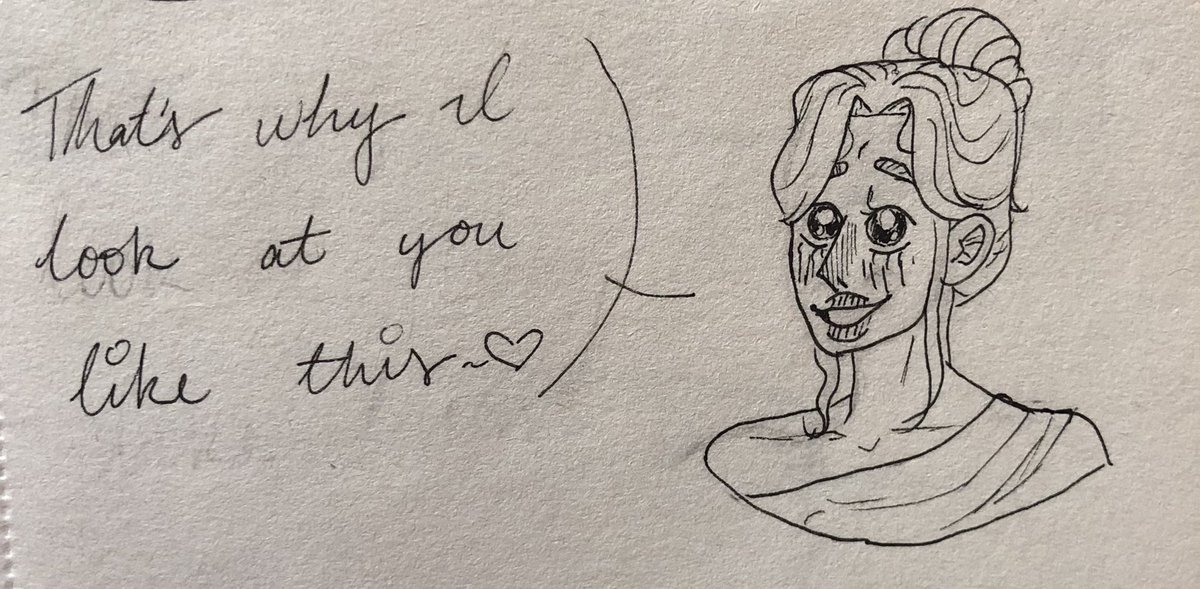 That's why I
look at you
like this~♡